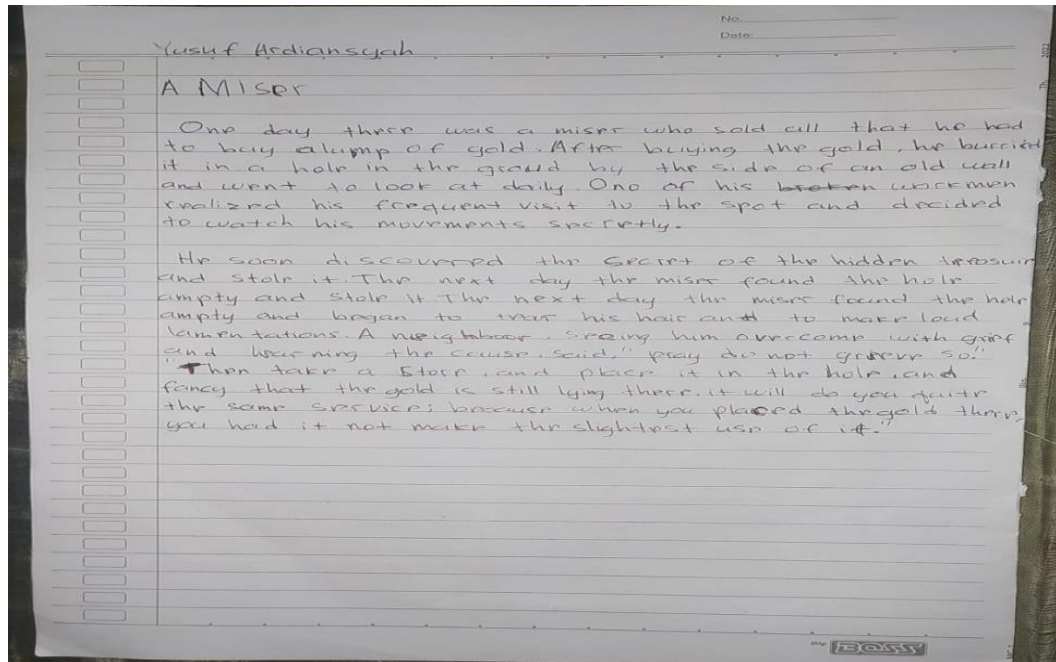 No.
Date:
Yusuf Ardiansyah
A Miser
One day there was a miser who sold all that he had
to buy alump of gold. After buying the gold, he burried
it in a hole in the groud by the side of an old wall
and went to look at daily. One of his broken workmen
realized his frequent visit to the spot and decided
to watch his movements secretly.
He soon discovered the secret of the hidden
and stole it. The next day the miser found the hole
ampty and stole it. The next day the miser found the hole
ampty and began to tear his hair and to make loud
lamentations. A neighboor, seeing him overcome with grief
and the cause, said, "pray do not grieve so."
"Then take a Store, and place it in the hole, and
fancy that the gold is still lying there. it will do you quite
the same service; because when you placed thegold there,
you had it not make the slightest use of it."
BOSS